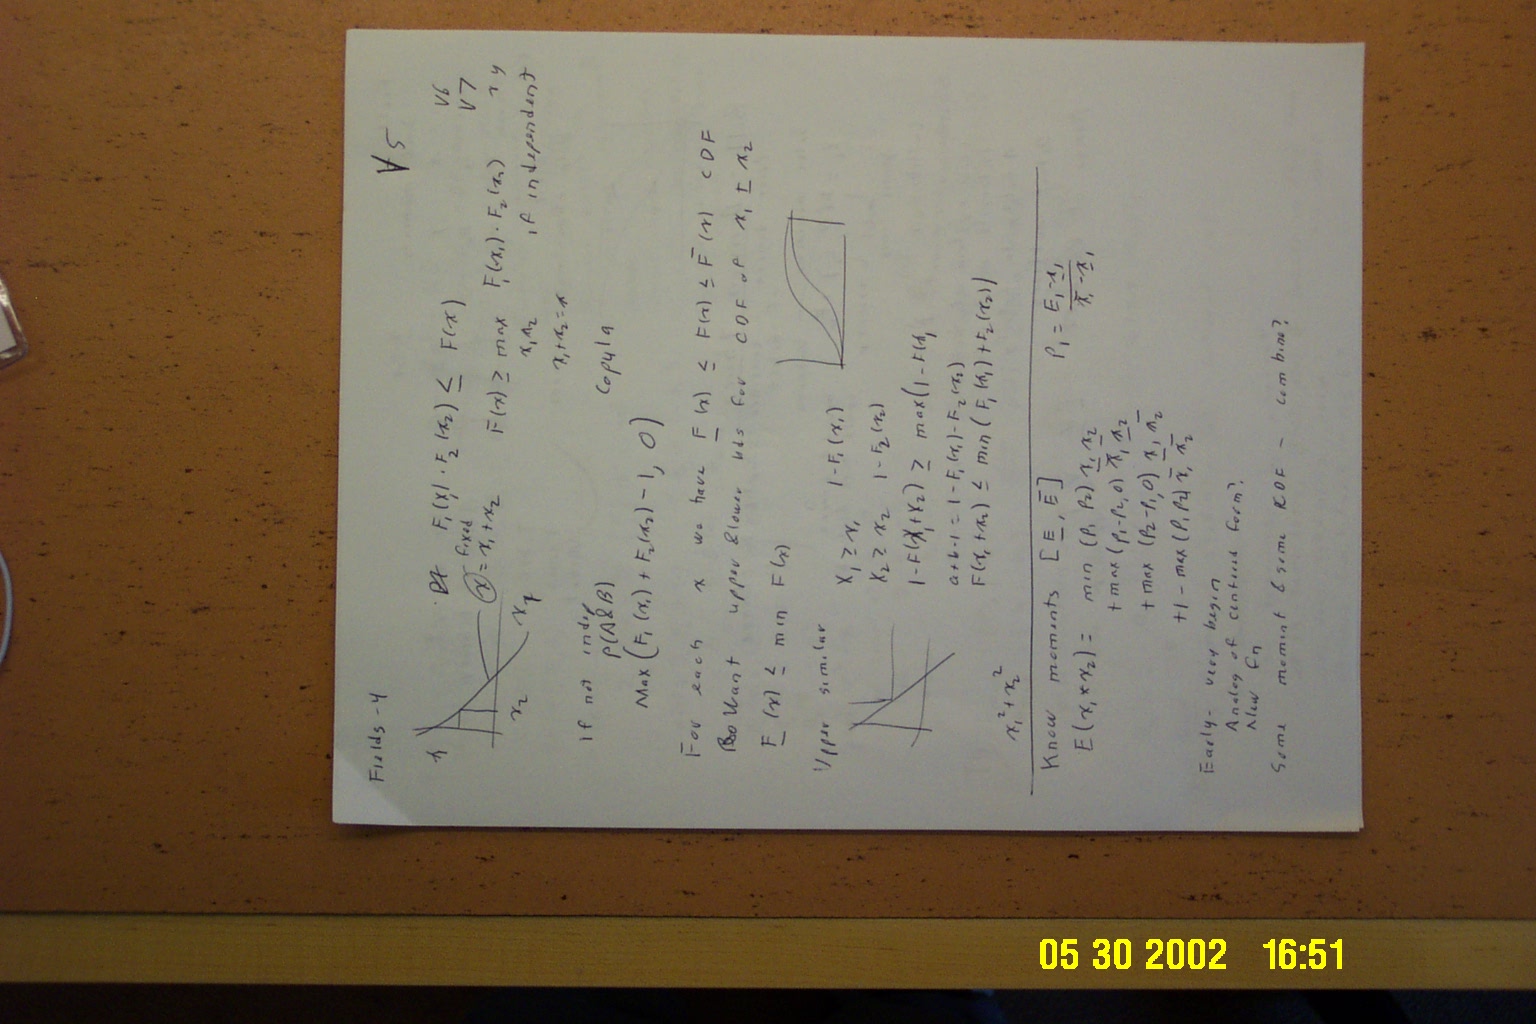 Fields-4
V5
F₁(x₁)·F₂(x₂) ≤ F(x)
V6
V7
fixed
x = x₁+x₂
F̄(x) ≥ max F₁(x₁)·F₂(x₂)
x₁x₂
if independent
x₂
x₁+x₂=x
if not indep
P(A&B)
Copula
Max(F₁(x₁)+F₂(x₂)-1, 0)
For each x we have F̲(x) ≤ F(x) ≤ F̄(x) CDF
Want upper & lower bds for CDF of x₁ ± x₂
F̲(x) ≤ min F(x)
Upper similar
X₁ ≥ x₁ 1-F₁(x₁)
X₂ ≥ x₂ 1-F₂(x₂)
1-F(x₁+x₂) ≥ max(1-F(x₁
a+b-1 = 1-F₁(x₁)-F₂(x₂)
F(x₁+x₂) ≤ min(F₁(x₁)+F₂(x₂))
x₁²+x₂²
Know moments [E̲, Ē]
E(x₁*x₂) = min(p₁ p₂) x̲₁ x̲₂
+ max(p₁-p₂,0) x̄₁ x̲₂
+ max(p₂-p₁,0) x̲₁ x̄₂
+1 - max(p₁ p₂) x̄₁ x̲₂
P₁ = E₁-x̲₁ / x̄₁-x̲₁
Early - very begin
Analog of centered form?
New fn
Some moment & some CDF - combine?
05 30 2002 16:51